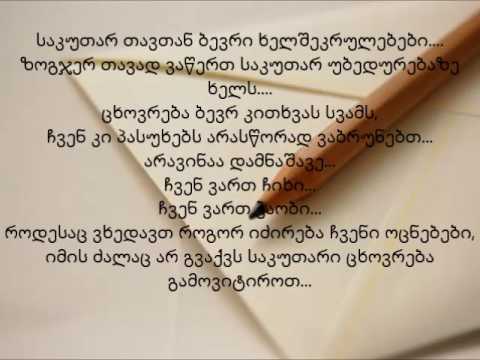 საკუთარ თავთან ბევრი ხელშეკრულებები....
ზოგჯერ თავად ვაწერთ საკუთარ უბედურებაზე
ხელს....
ცხოვრება ბევრ კითხვას სვამს,
ჩვენ კი პასუხებს არასწორად ვაბრუნებთ...
არავინაა დამნაშავე...
ჩვენ ვართ ჩიხი...
ჩვენ ვართ ჭაობი...
როდესაც ვხედავთ როგორ იძირება ჩვენი ოცნებები,
იმის ძალაც არ გვაქვს საკუთარი ცხოვრება
გამოვიტიროთ...